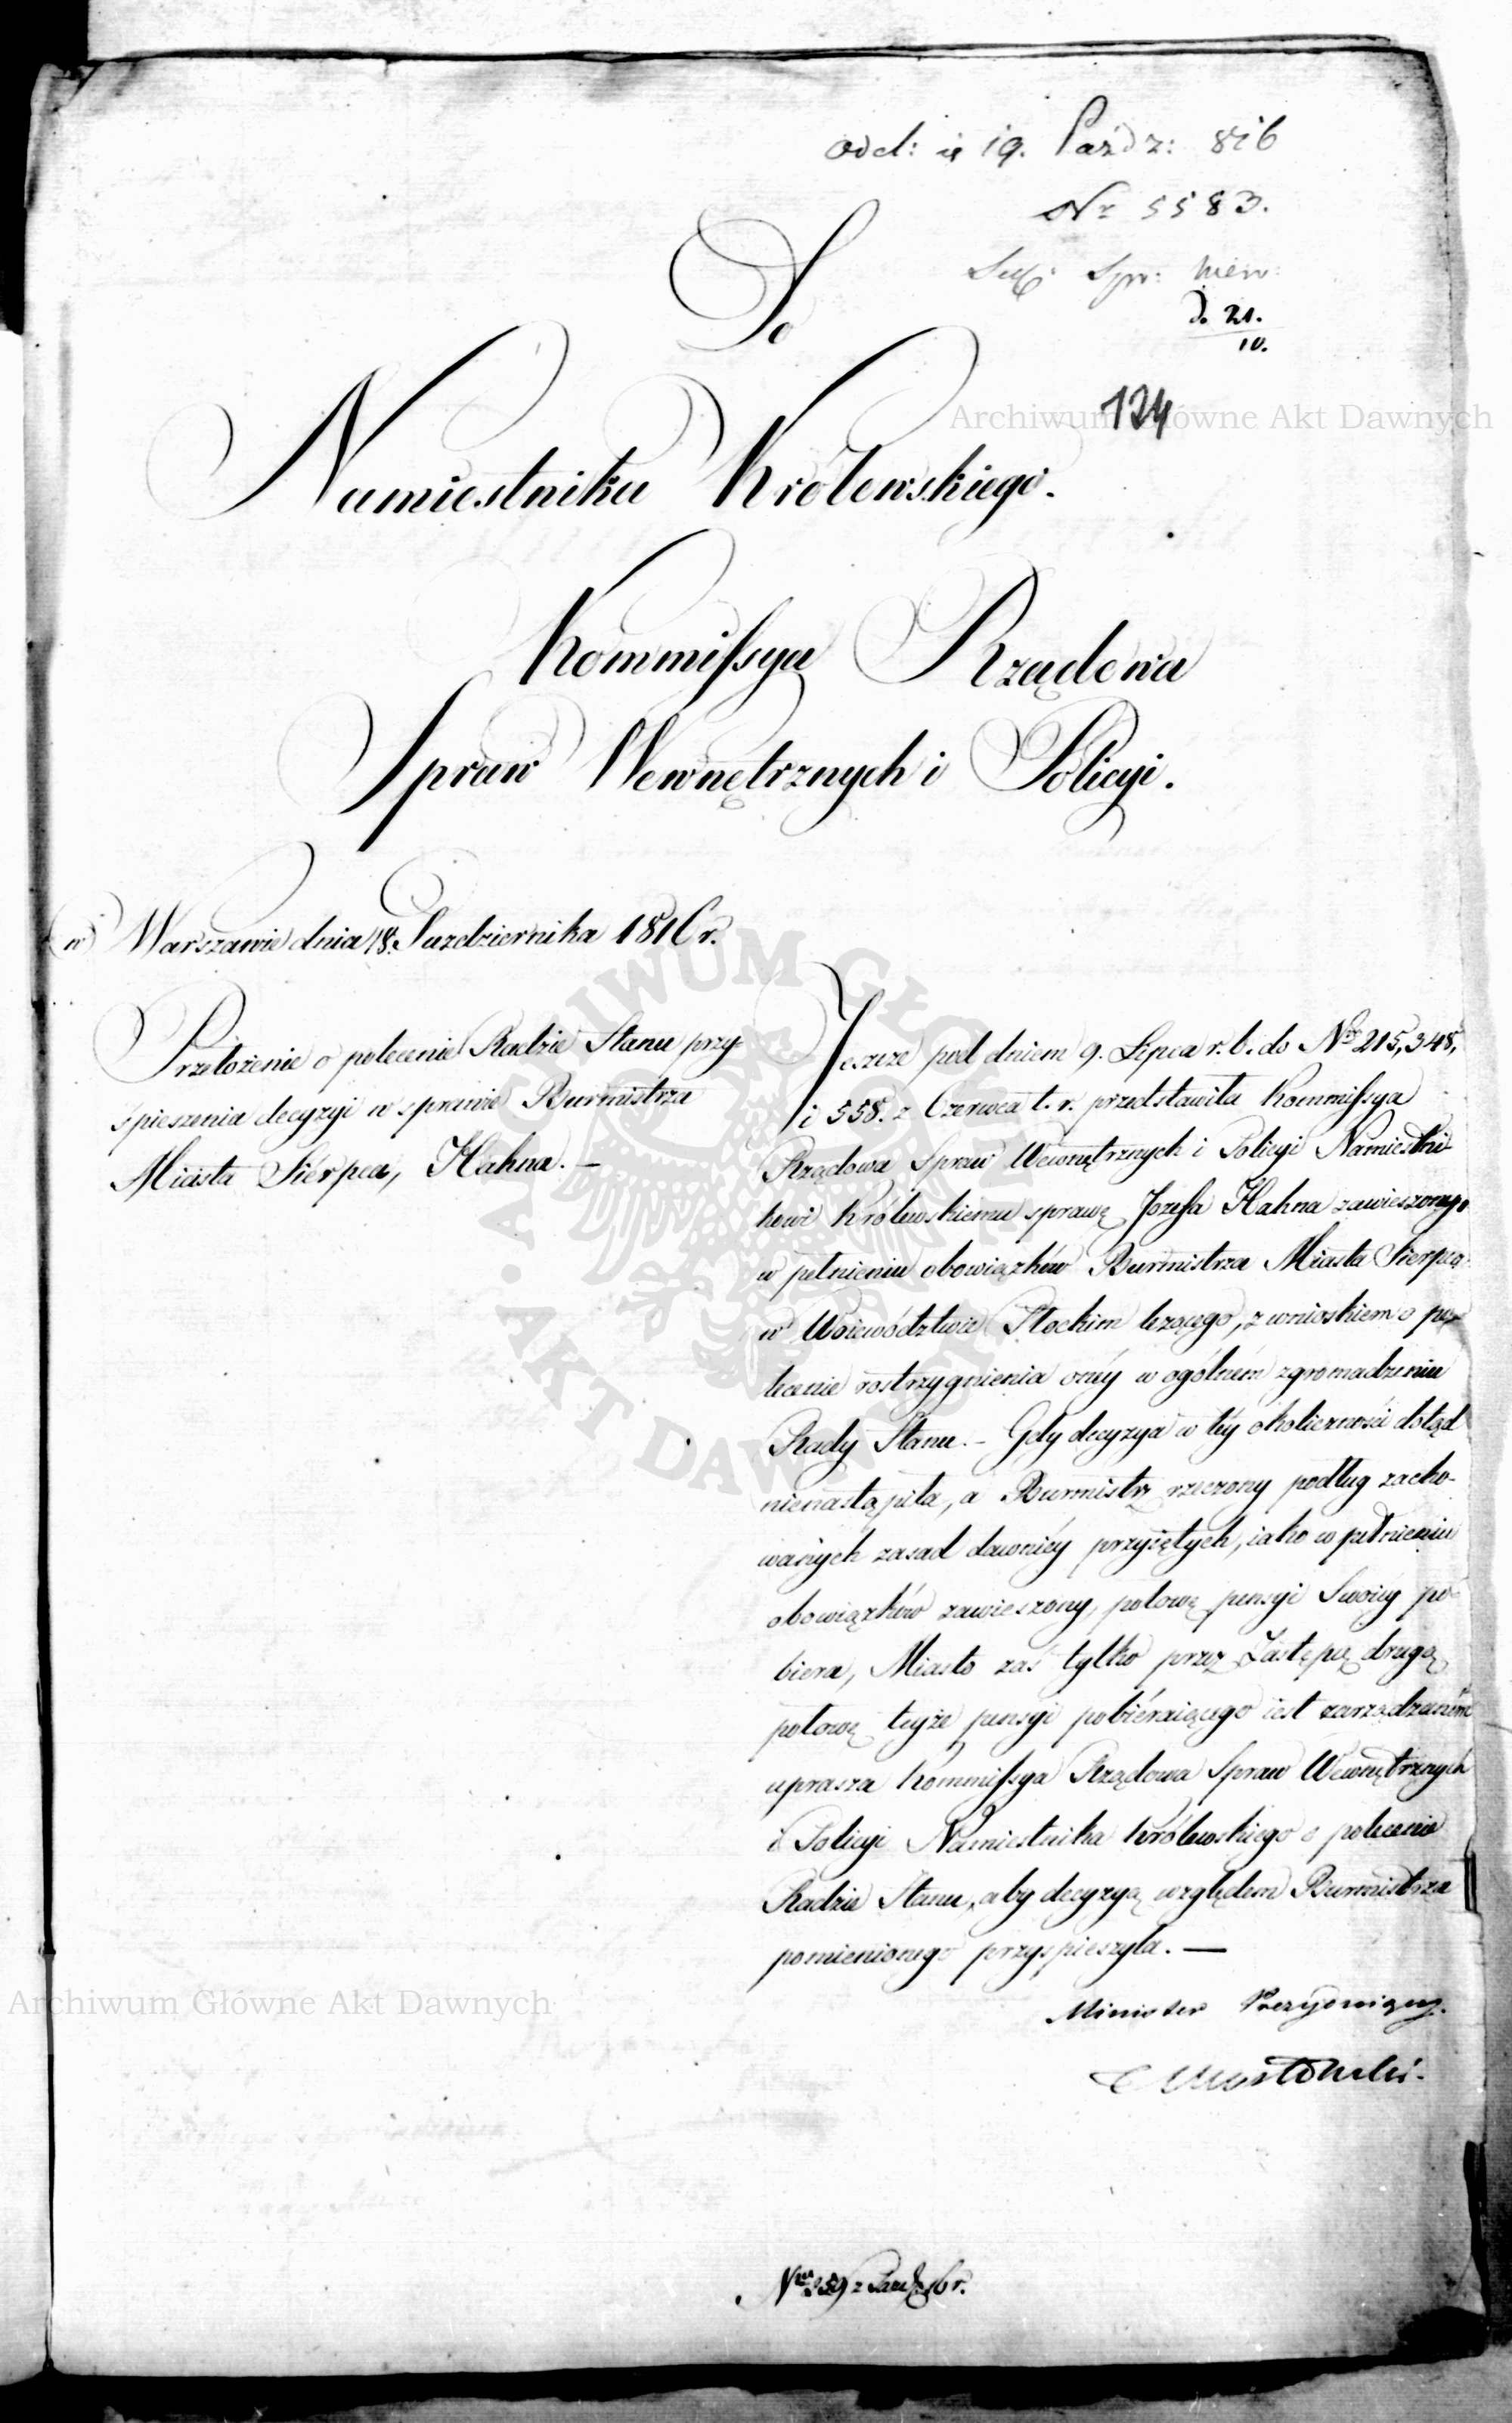 odd: 19. Paźdz: 816
Nr 5583.
Spr: Wew:
d. 21.
10.
124
Archiwum Główne Akt Dawnych
Do
Namiestnika Królewskiego.
Kommissya Rządowa
Spraw Wewnętrznych i Policyi.
w Warszawie dnia 18. Pazdziernika 1816 r.
Przełożenie o polecenie Radzie Stanu przy-
spieszenia decyzyi w sprawie Burmistrza
Miasta Siérpca, Hahna. —
Jeszcze pod dniem 9. Lipca r. b. do Nr 215, 348,
i 558. z Czerwca t. r. przedstawiła Kommissya
Rządowa Spraw Wewnętrznych i Policyi Namiestni-
kowi Królewskiemu sprawę Jozefa Hahna zawieszonego
w pełnieniu obowiązków Burmistrza Miasta Sierpca
w Woiewództwie Płockim leżącego, z wnioskiem o po-
lecenie rostrzygnienia onéy w ogólném zgromadzeniu
Rady Stanu. - Gdy decyzya w téy okoliczności dotąd
nienastąpiła, a Burmistrz rzeczony podług zacho-
wanych zasad dawniéy przyiętych, iako w pełnieniu
obowiązków zawieszony, połowę pensyi Swoiéy po-
biera, Miasto zaś tylko przez Zastępcę drugą
połowę teyże pensyi pobiéraiącego iest zarządzaném
uprasza Kommissya Rządowa Spraw Wewnętrznych
i Policyi Namiestnika Królewskiego o polecenie
Radzie Stanu, aby decyzyą względem Burmistrza
pomienionego przyspieszyła. —
Archiwum Główne Akt Dawnych
Minister Prezyduiący.
ARCHIWUM GŁÓWNE AKT DAWNYCH
z Pazdz. 16 r.